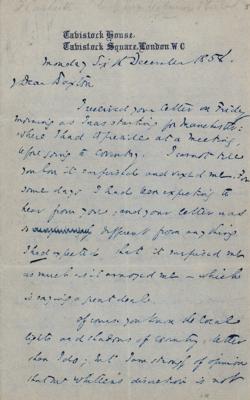 Tavistock House,
Tavistock Square, London W C
Monday Sixth December 1858.
My Dear Paxton
I received your letter on Friday
morning as I was starting for Manchester
where I had to preside at a meeting,
before going to Coventry. I cannot tell
you how it surprised and vexed me. For
some days I had been expecting to
hear from you; and your letter was
so different from anything
I had expected that it surprised me
as much as it annoyed me — which
is saying a great deal.
Of course you know the local
lights and shadows of Coventry, better
than I do; but I am strongly of opinion
that Mr direction is not